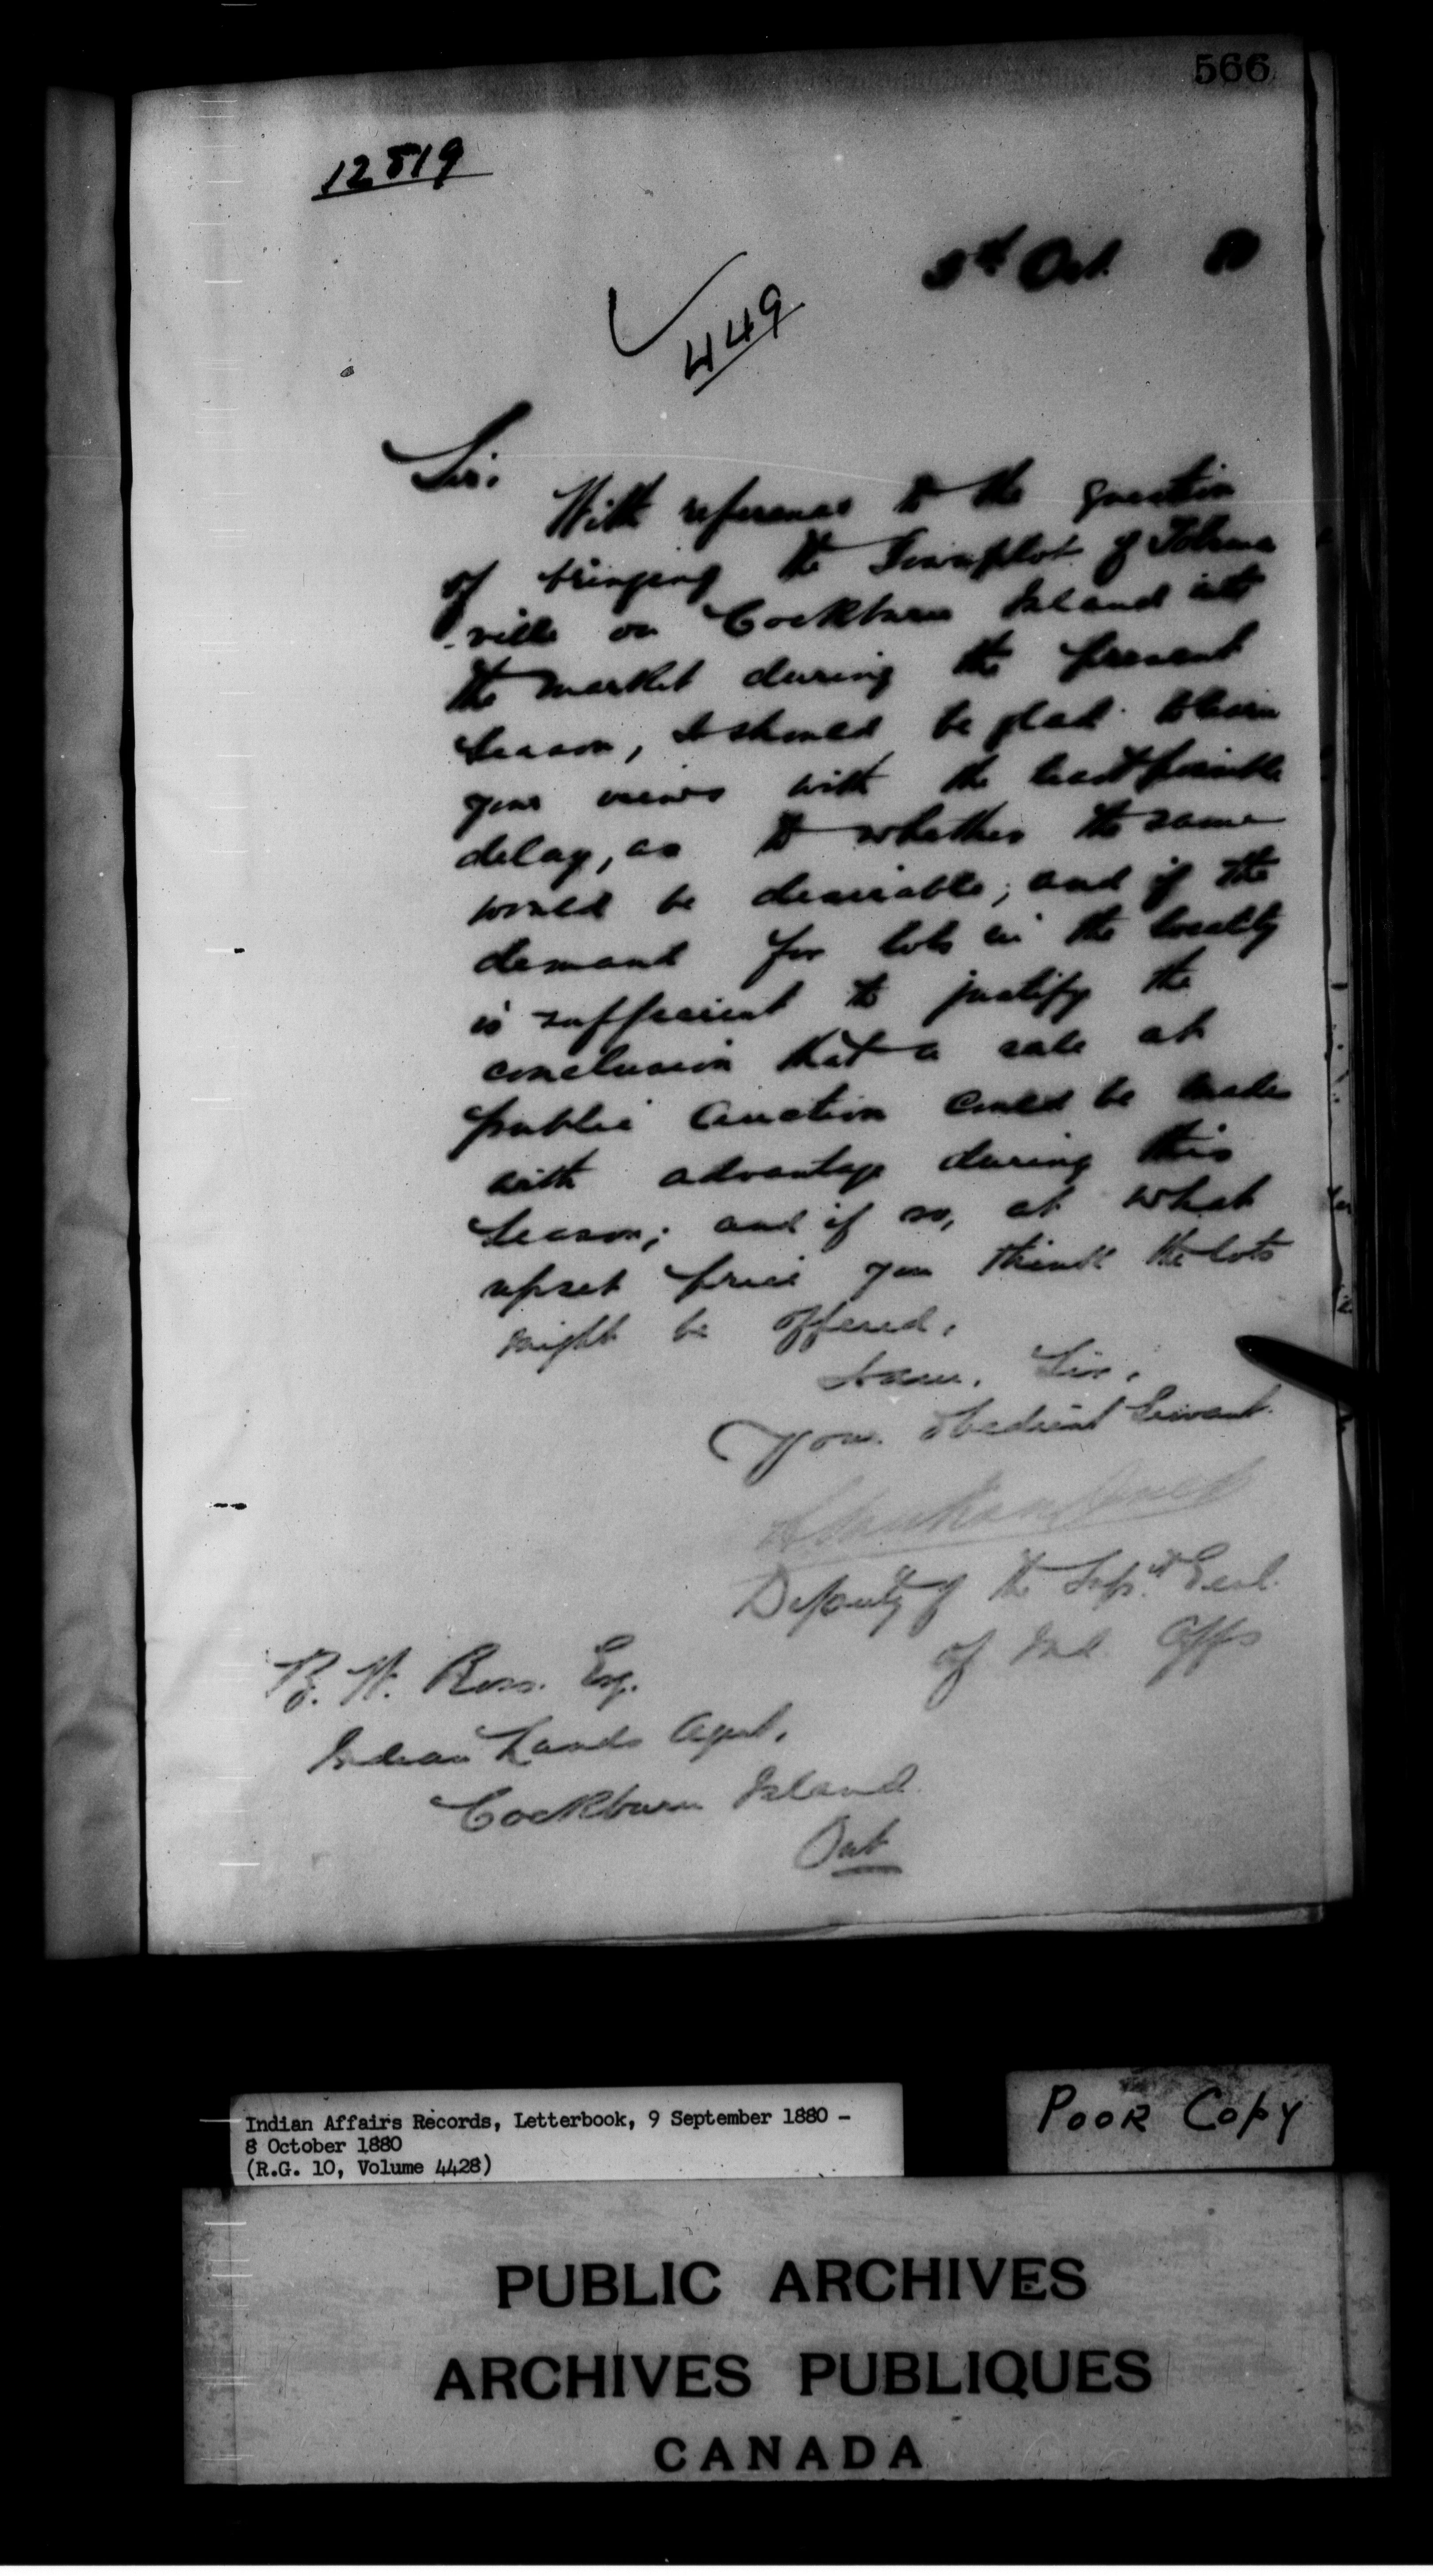 566
12819
449
Oct. 80
Sir:
With reference to the question
of bringing the Townplot of Tolsma
-ville on Cockburn Island into
the market during the present
Season, I should be glad to learn
your views with the least possible
delay, as to whether the same
would be desirable; and if the
demand for lots in the locality
is sufficient to justify the
conclusion that a sale at
public auction could be made
with advantage during this
Season; and if so, at what
upset price you think the lots
might be offered.
I am, Sir,
Your obedient Servant.
Deputy of the Supt Genl.
of Ind. Affs
B. W. Ross. Esq.
Indian Lands Agent,
Cockburn Island
Ont
Indian Affairs Records, Letterbook, 9 September 1880 -
8 October 1880
(R.G. 10, Volume 4428)
POOR COPY
PUBLIC ARCHIVES
ARCHIVES PUBLIQUES
CANADA